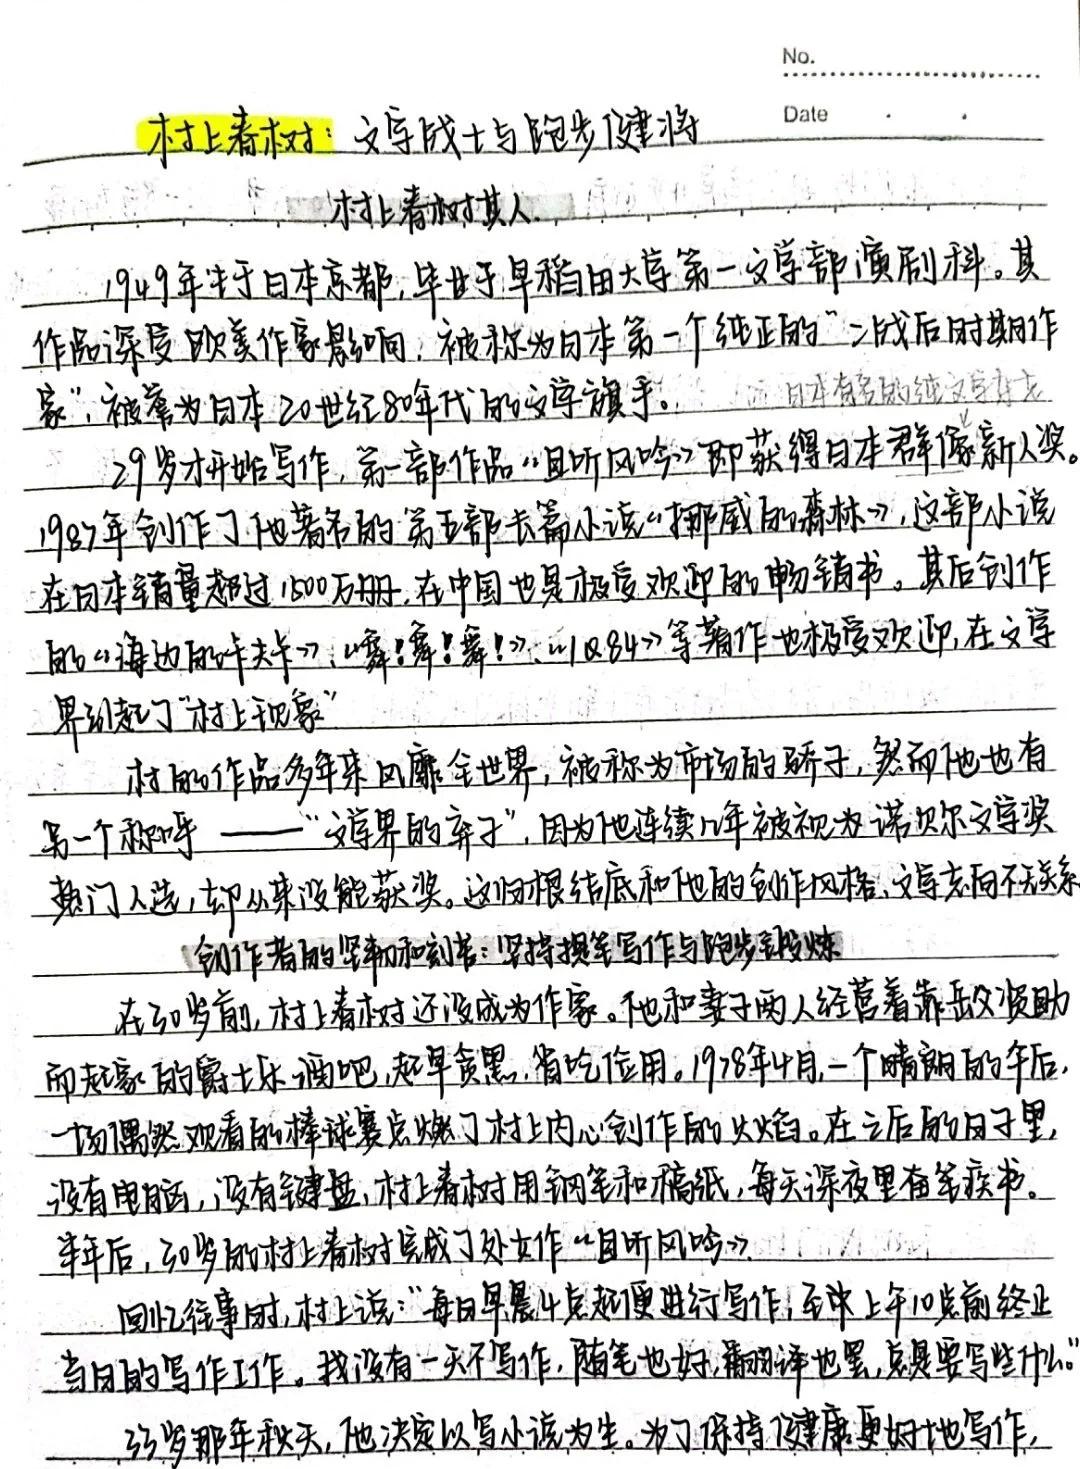 No.
Date
村上春树：文学战士与跑步健将
村上春树其人.
1949年生于日本京都，毕业于早稻田大学第一文学部演剧科。其
作品深受欧美作家影响，被称为日本第一个纯正的“二战后时期作
家”，被誉为日本20世纪80年代的文学旗手。
日本有名的纯文学杂志
29岁才开始写作，第一部作品《且听风吟》即获得日本群像新人奖。
1987年创作了他著名的第五部长篇小说《挪威的森林》，这部小说
在日本销量超过1500万册，在中国也是极受欢迎的畅销书。其后创作
的《海边的卡夫卡》、《舞！舞！舞！》、《1Q84》等著作也极受欢迎，在文学
界引起了“村上现象”
村的作品多年来风靡全世界，被称为市场的骄子，然而他也有
另一个称呼——“文学界的弃子”，因为他连续几年被视为诺贝尔文学奖
热门人选，却从来没能获奖。这归根结底和他的创作风格、文学志向不无关系
创作者的坚韧和刻苦：坚持提笔写作与跑步锻炼
在30岁前，村上春树还没成为作家。他和妻子两人经营着靠岳父资助
而起家的爵士乐酒吧，起早贪黑，省吃俭用。1978年4月，一个晴朗的午后，
一场偶然观看的棒球赛点燃了村上内心创作的火焰。在之后的日子里，
没有电脑，没有键盘，村上春树用钢笔和稿纸，每天深夜里奋笔疾书。
半年后，30岁的村上春树完成了处女作《且听风吟》
回忆往事时，村上说：“每日早晨4点起便进行写作，至中上午10点前终止
当日的写作工作。我没有一天不写作，随笔也好，翻译也罢，总是要写些什么。”
33岁那年秋天，他决定以写小说为生。为了保持健康更好地写作，